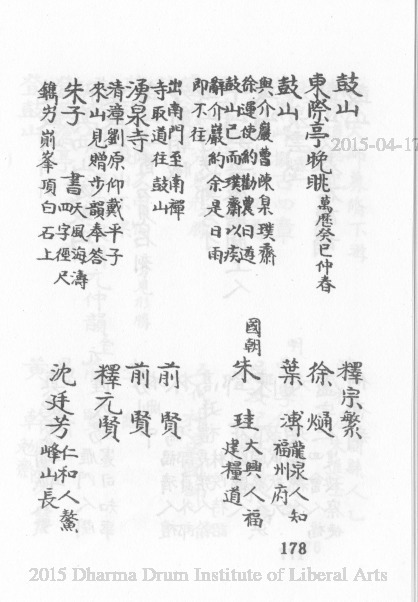 鼓山
東際亭晚眺 萬歷癸巳仲春
鼓山
與介巖曹陳臬璞齋
徐運使約勸農日遊
鼓山已而璞齋以疾
辭介巖約余是日雨
即不往
出南門至南禪
寺取道往鼓山
湧泉寺
清漳劉原仰戴平子
來山見贈步韻奉答
朱子 書天風海濤
四字徑尺
鐫岃崱峯頂白石上
釋宗繁
徐熥
葉溥 龍泉人知
福州府
國朝
朱珪 大興人福
建糧道
前賢
前賢
釋元賢
沈廷芳 仁和人鰲
峰山長
178
2015-04-17
2015 Dharma Drum Institute of Liberal Arts